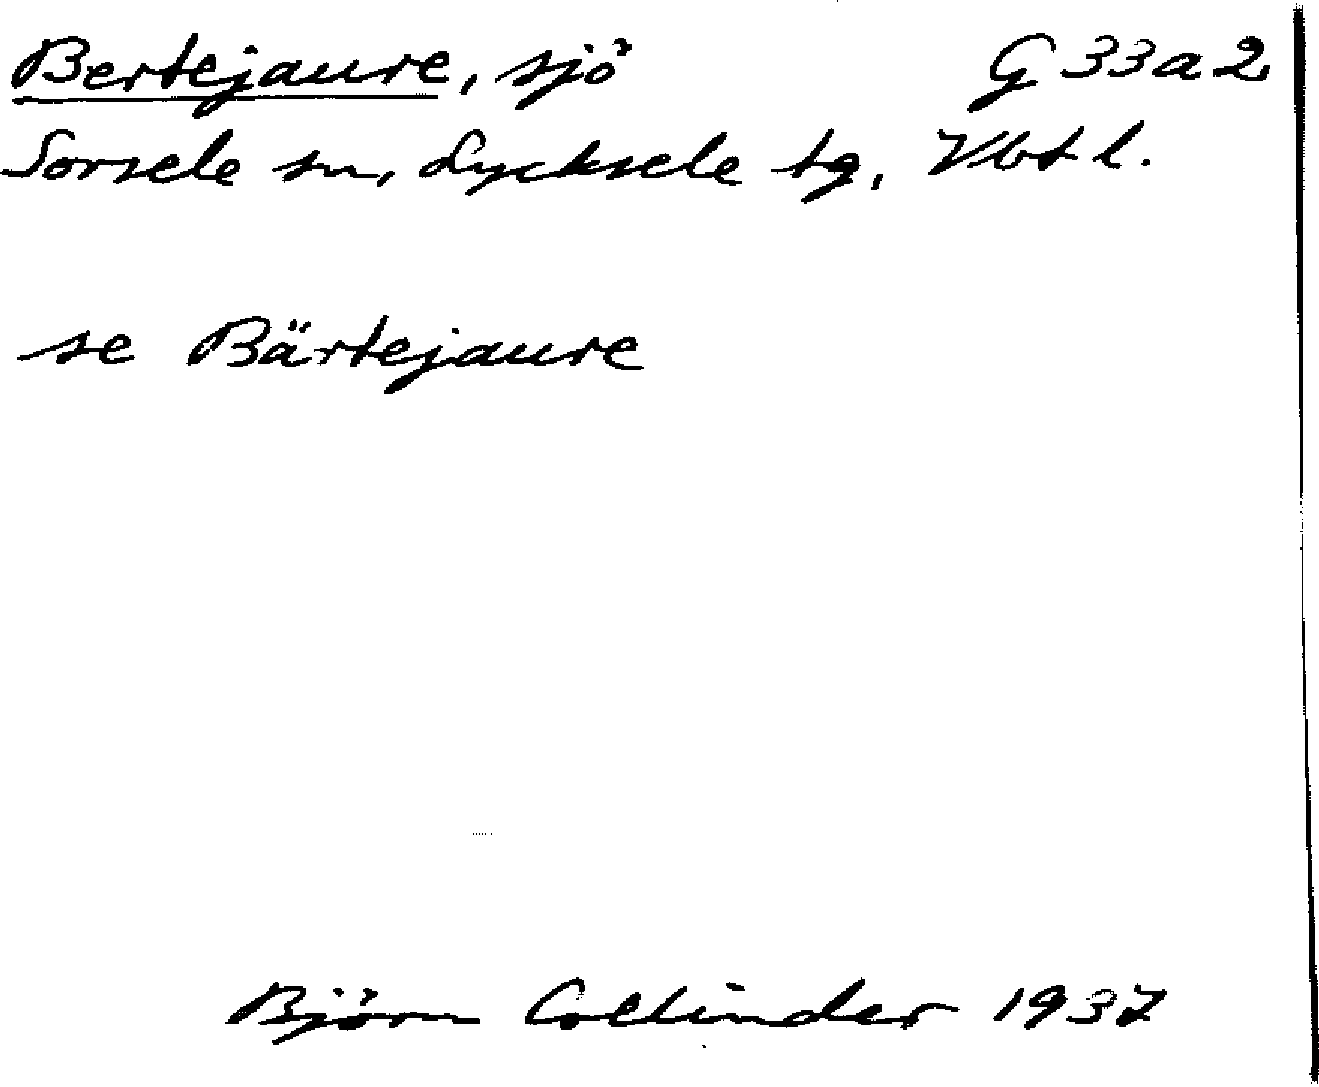 Bertejaure, sjö G 33 a 2
Sorsele sn, Lycksele tg, Vbt l.
se Bärtejaure
Björn Collinder 1937